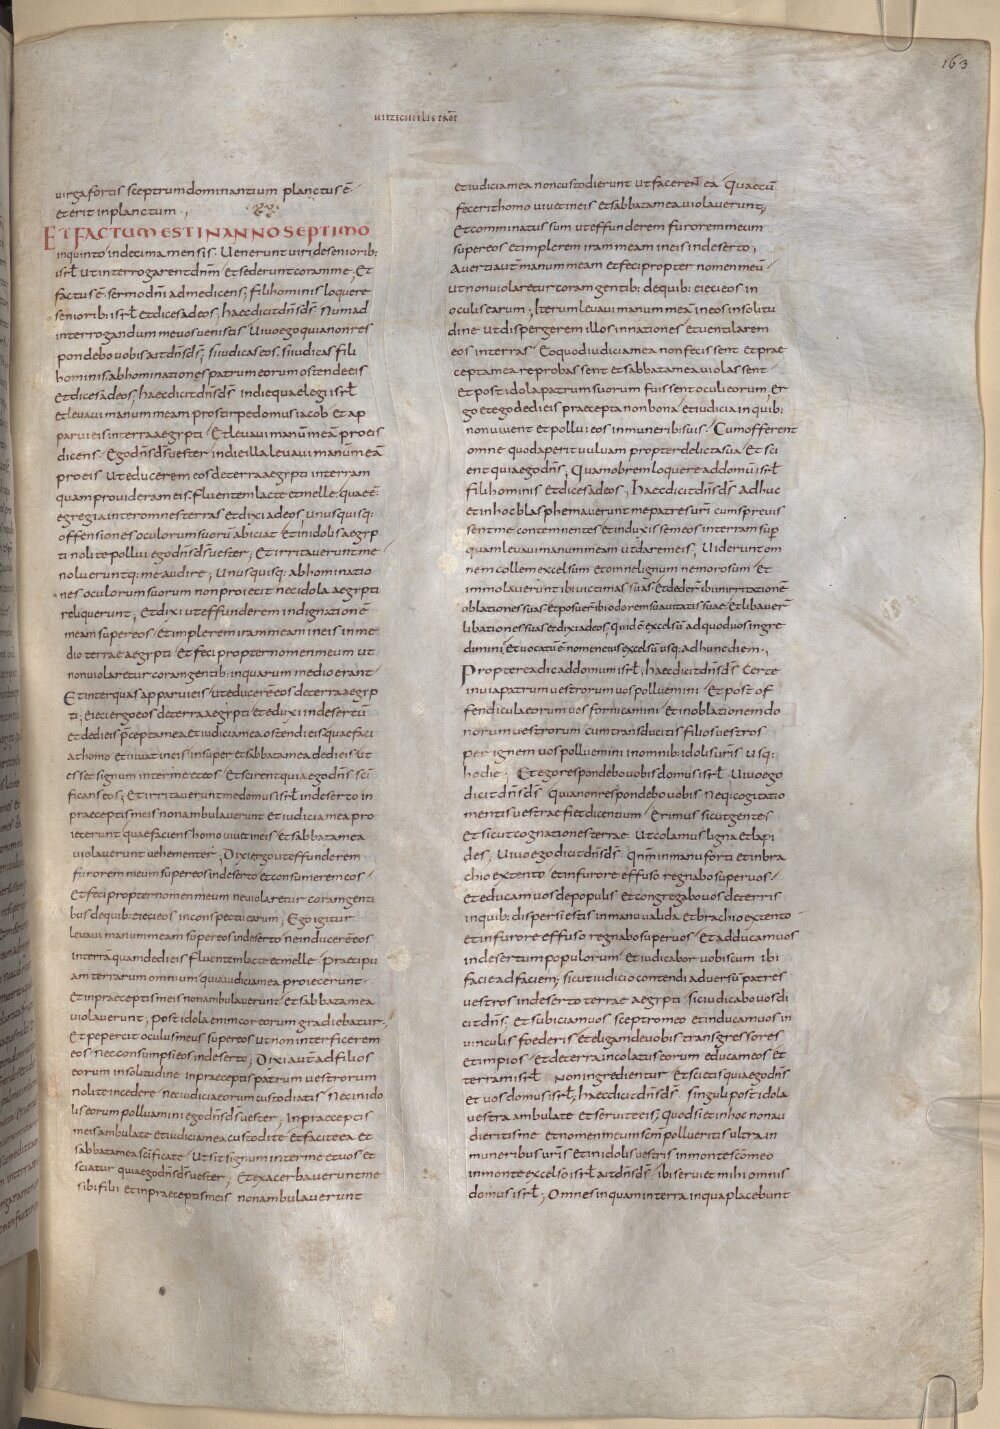 163
HIEZECHIELIS PROPH
virga fortis sceptrum dominantium planctus ē
et erit in planctum .,
ET FACTUM EST IN ANNO SEPTIMO
in quinto in decima mensis. Uenerunt uiri de seniorib:
isrł ut interrogarent dnm̄ et sederunt coram me. Et
factus ē sermo dnī ad me dicens; fili hominis loquere
seniorib: isrł et dices ad eos; haec dicit dn̄s dš Num ad
interrogandum me uos uenistis Uiuo ego quia non res
pondebo uobis ait dn̄s dš; si iudicas eos. si iudicas fili
hominis abhominationes patrum eorum ostende eis
et dices ad eos; haec dicit dn̄s dš in die qua elegi isrł
et leuaui manum meam pro stirpe domus iacob et ap
parui eis in terra aegypti Et leuaui manum meā pro eis
dicens. Ego dn̄s dš uester in die illa leuaui manum meā
pro eis ut educerem eos de terra aegypti in terram
quam prouideram eis. fluentem lacte et melle. quae ē
egregia inter omnes terras et dixi ad eos; unusquisq:
offensiones oculorum suorū abiciat et in idolis aegyp
ti nolite pollui ego dn̄s dš uester; Et irritauerunt me
nolueruntq: me audire; Unusquisq: abhominatio
nes oculorum suorum non proiecit nec idola aegypti
reliquerunt; Et dixi ut effunderem indignationē
meam super eos et implerem iram meam in eis in me
dio terrae aegypti Et feci propter nomen meum ut
non uiolaretur coram gentib: in quarum medio erant
Et inter quas apparui eis ut educerē eos de terra aegyp
ti; eieci ergo eos de terra aegypti et eduxi in desertū
et dedi eis p̄cepta mea et iudicia mea ostendi eis quae faci
at homo et uiuat in eis insuper et sabbata mea dedi eis ut
esset signum inter me et eos Et scirent quia ego dn̄s sc̄i
ficans eos; Et irritauerunt me domus isrł in deserto in
praeceptis meis non ambulauerunt et iudicia mea pro
iecerunt quae faciens homo uiuet in eis Et sabbata mea
uiolauerunt uehementer; Dixi ergo ut effunderem
furorem meum super eos in deserto et consumerem eos
Et feci propter nomen meum ne uiolaretur coram genti
bus de quib: eieci eos in conspectu earum; Ego igitur
leuaui manum meam super eos in deserto ne inducerē eos
in terrā quam dedi eis fluentem lacte et melle. Praecipu
am terrarum omnium quia iudicia mea proiecerunt
Et in praeceptis meis non ambulauerunt et sabbata mea
uiolauerunt; post idola enim cor eorum gradiebatur;
Et pepercit oculus meus super eos ut non interficerem
eos nec consumpsi eos in deserto; Dixi aut̄ ad filios
eorum in solitudine in praeceptis patrum uestrorum
nolite incedere nec iudicia eorum custodiatis nec in ido
lis eorum polluamini ego dn̄s dš uester; In praeceptis
meis ambulate et iudicia mea custodite et facite ea et
sabbata mea sc̄ificate ut sit signum inter me et uos et
sciatur quia ego dn̄s dš uester; Et exacerbauerunt me
sibi filii et in praeceptis meis non ambulauerunt
et iudicia mea non custodierunt ut facerent ea Quae cū
fecerit homo uiuet in eis et sabbata mea uiolauerunt;
Et comminatus sum ut effunderem furorem meum
super eos et implerem iram meam in eis in deserto;
Auerti aut̄ manum meam et feci propter nomen meū
ut non uiolaretur coram gentib: de quib: eieci eos in
oculis earum; Iterum leuaui manum meā in eos in solitu
dine ut dispergerem illos in nationes et uentilarem
eos in terras Eo quod iudicia mea non fecissent et prae
cepta mea reprobassent et sabbata mea uiolassent
et post idola patrum suorum fuissent oculi eorum; Er
go et ego dedi eis praecepta non bona et iudicia in quib:
non uiuent et pollui eos in muneribus suis Cum offerrent
omne quod aperit uuluam propter delicta sua Et sci
ent quia ego dn̄s; Quamobrem loquere ad domū isrł
fili hominis et dices ad eos; haec dicit dn̄s dš Adhuc
et in hoc blasphemauerunt me patres uri cum spreuis
sent me contemnentes et induxissem eos in terram sup̄
quam leuaui manum meam ut darem eis; Uiderunt om
nem collem excelsum et omne lignum nemorosum Et
immolauerunt ibi uictimas suas et deder̄ ibi irritationē
oblationes suas et posuer̄ ibi odorem suauitatis suae et libauer̄
libationes suas et dixi ad eos; quid ē excelsū ad quod uos ingre
dimini et uocatū ē nomen eius excelsū usq: ad hunc diem.,
Propterea dic ad domum isrł; haec dicit dn̄s dš Certe
in uia patrum uestrorum uos polluemini Et post of
fendicula eorum uos fornicamini Et in oblatione do
norum uestrorum cum transducitis filios uestros
per ignem uos polluemini in omnib: idolis uris usq:
hodie; Et ego respondebo uobis domus isrł. Uiuo ego
dicit dn̄s dš quia non respondebo uobis Neq: cogitatio
mentis uestrae fiet dicentium Erimus sicut gentes
Et sicut cognationes terrae ut colamus ligna et lapi
des; Uiuo ego dicit dn̄s dš. Qnm̄ in manu forti et in bra
chio extento et in furore effuso regnabo super uos
Et educam uos de populis et congregabo uos de terris
in quib: dispersi estis in manu ualida et brachio extento
et in furore effuso regnabo super uos Et adducam uos
in desertum populorum Et iudicabor uobiscum ibi
facie ad faciem; sicut iudicio contendi aduersū patres
uestros in deserto terrae aegypti sic iudicabo uos di
cit dn̄s; Et subiciam uos sceptro meo et inducam uos in
uinculis foederis et eligam de uobis transgressores
et impios Et de terra incolatus eorum educam eos et
terram isrł non ingredientur Et scietis quia ego dn̄s
et uos domus isrł; haec dicit dn̄s dš. singuli post idola
uestra ambulate et seruite eis; Quod si et in hoc non au
dieritis me et nomen meum scm̄ pollueritis ultra in
muneribus uris et in idolis uestris in monte sco meo
in monte excelso isrł ait dn̄s dš. ibi seruiet mihi omnis
domus isrł; Omnes inquam in terra in qua placebunt